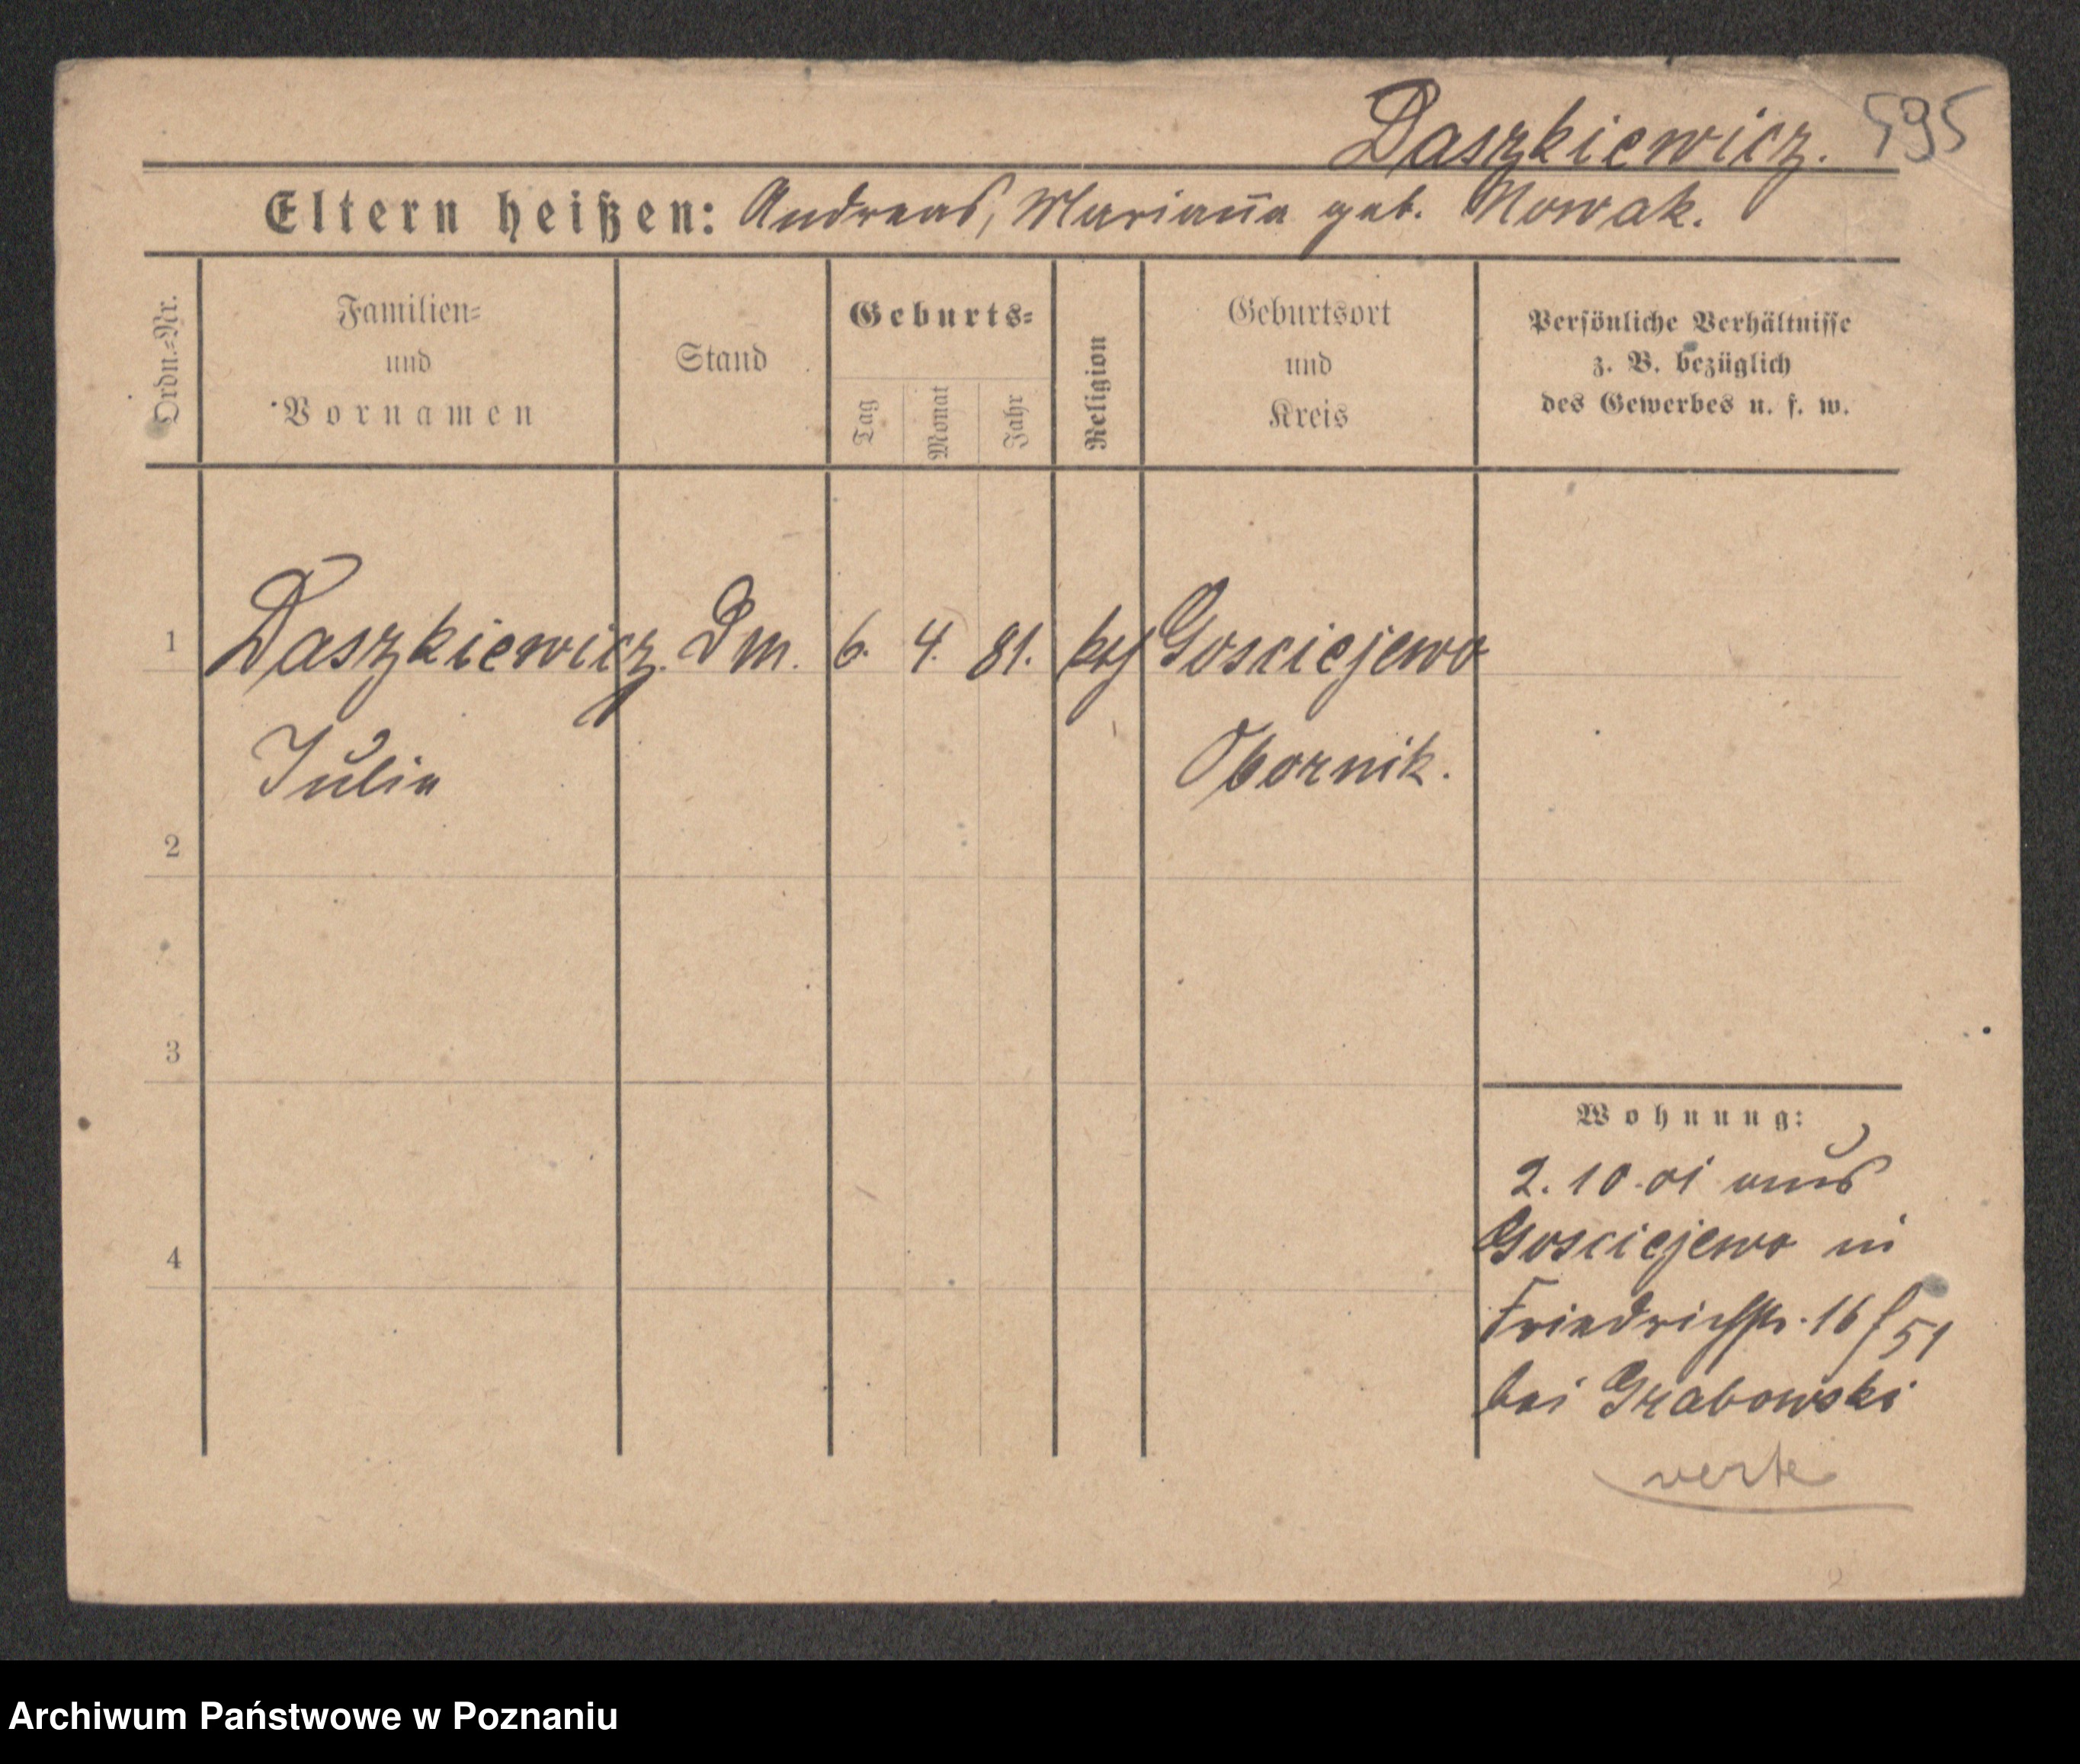 Daszkiewicz. 595
Eltern heißen: Andreas, Marianna geb. Nowak.
Ordn.-Nr.
Familien-
und
Vornamen
Stand
Geburts-
Tag
Monat
Jahr
Religion
Geburtsort
und
Kreis
Persönliche Verhältnisse
z. B. bezüglich
des Gewerbes u. s. w.
1 Daszkiewicz. Dm. 6. 4. 81. Gosciejewo
Julia Obornik.
2
3
4
Wohnung:
2. 10. 01 aus
Gosciejewo in
Friedrichstr. 16
bei Grabowski
verte
Archiwum Państwowe w Poznaniu